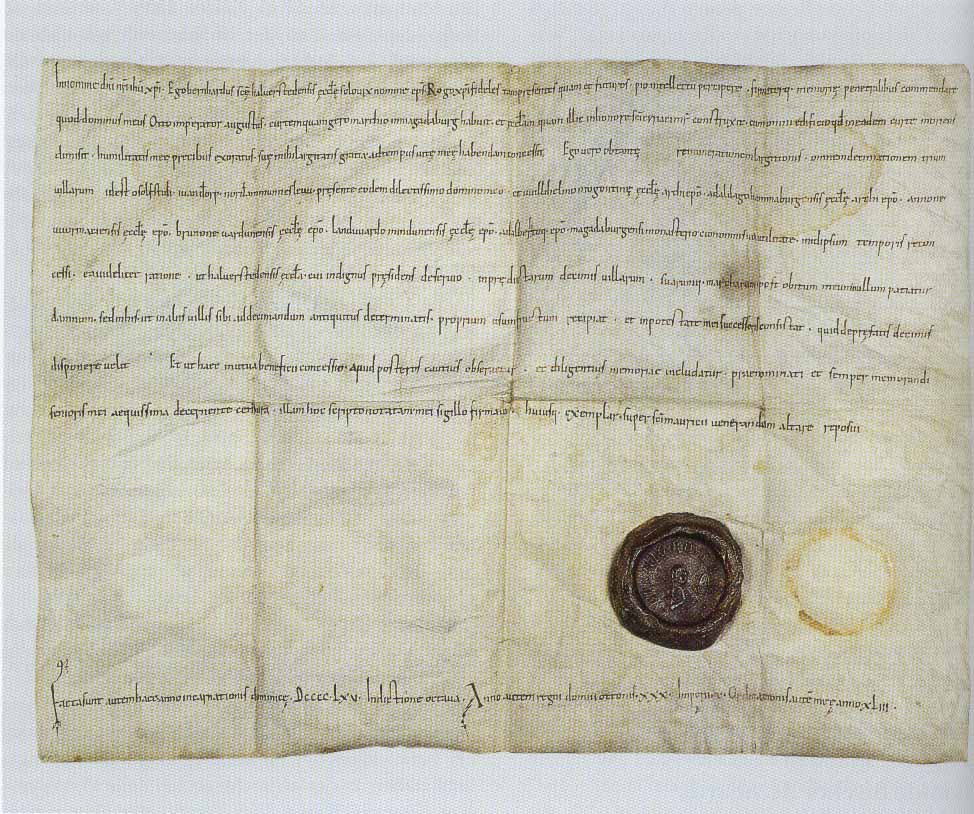 In nomine dñi nr̃i ihũ xp̃i. Ego bernhardus scę halverstedensis ęcclę solo vix nomine ep̃s Rogo xp̃i fideles tam presentes quam et futuros. pio intellectu percipere. firmiterq; memorię penetralibus commendare
quod dominus meus Otto imperator augustus. curtem quam gero marchio in magadaburg habuit. et ęcclam quam illic in honore sci construxit. cum omni edificio qđ in eadem curte moriens
dimisit. humilitatis meę precibus exoratus. suę mihi largitatis gratia. ad tempus vitę meę habendam concessit. Ego vero ob tantę remunerationem largitionis. omnem decimationem trium
villarum id est osolfstidi. uuandlorp. northammunnesleuu. presente eodem dilectissimo domino meo. et uuillihelmo mogontinę ęcclę archiepõ. adaldago hammaburgensis ęcclę archiepõ. annone
uuormaciensis ęcclę epõ. brunone uardunensis ęcclę epõ. landuuardo mindunensis ęcclę epõ. magadaburgensi monasterio eiusdem temporis recon
cessi. ea videlicet ratione. ut halverstedensis ęccła. cui indignus pręsidens deservio. in prędictarum decimis villarum. suarumq; post obitum meum nullum patiatur
damnum. sed in his. ut in aliis villis sibi ad decimandum antiquitus determinatis. proprium usum fructum recipiat. et in potestate mei successoris consistat. quid de pręfatis decimis
disponere velit Et ut haec mutua beneficii concessio. apud posteros cautius observetur. et diligentius memoriae includatur. praenominati et semper memorandi
senioris mei aequissima decernente censura. illam hoc scripto notatam mei sigillo firmavi. huiusq; exemplar. super sc̃i mauricii venerandum altare reposui
Facta sunt autem haec anno incarnationis dominicę. DCCCC. LXV. Indictione octava. Anno autem regni domni ottonis. XXX. Imperii. Ordinationis autẽ meę anno XLIII.